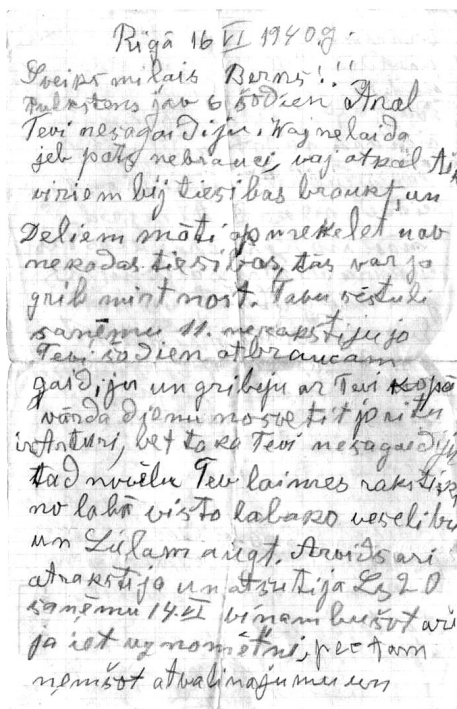 Rīgā 16 VI 1940.g.
Sveiks mīļais Berns!!!
Pulkstens jav 6 šodien
Tevi nesagaidiju. Vaj nelaida
jeb pats nebrauci, vaj atkal
viriem bij tiesibas braukt, un
Deliem māti apmeklet nav
nekadas tiesibas, tas var jo
grib mirt nost. Tavu vēstuli
saņēmu 11. nerakstiju jo
Tevi šodien atbraucam
gaidiju un gribeju ar Tevi kopā
vārda dienu nosvetit jo rītu
ir Arturi, bet ta ka Tevi nesagaidiju
tad novēlu Tev laimes
no labā visto labako veselibu
un Lielam augt. Arvids ari
atrakstija un atsutija Ls 20
saņēmu 14.VI viņam bušot
ja iet uz nometni, pectam
ņemšot atvalinajumu un